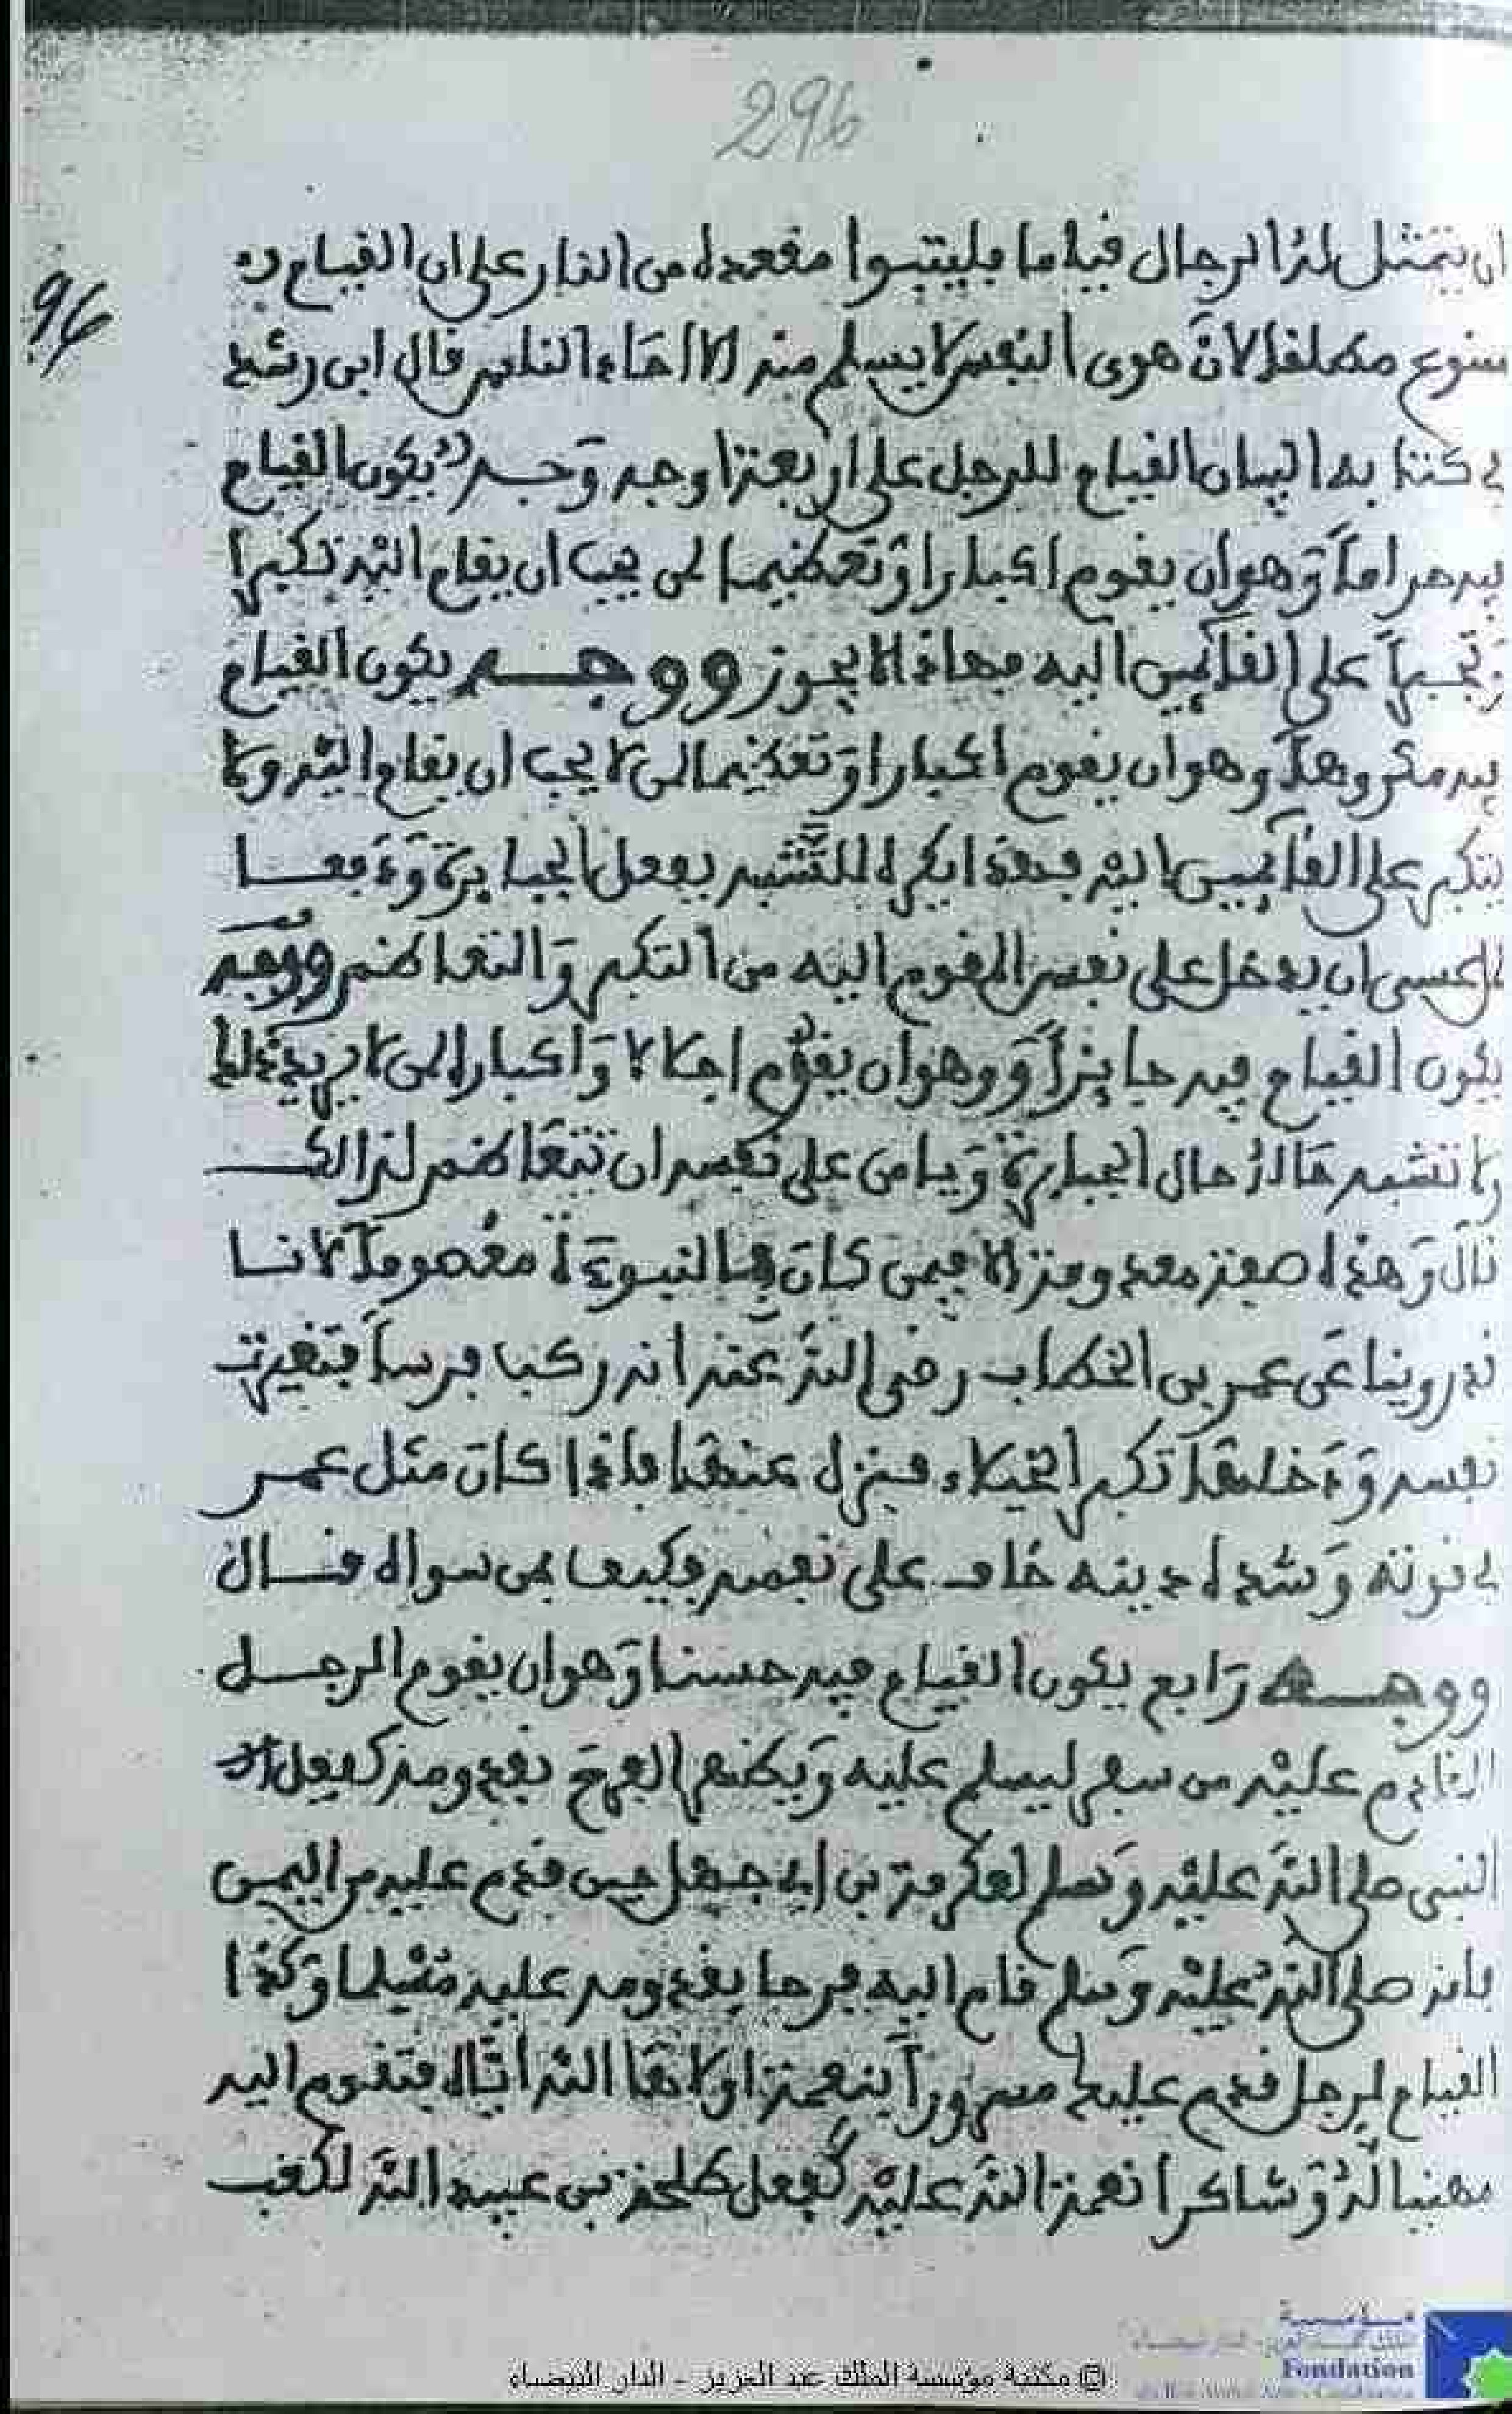 296
96
ان يتمثل له الرجال قياما فليتبوا مقعده من النار على ان القيام
ممنوع مطلقا لان هوى النفس لا يسلم منه الا احاد الناس قال ابن رشد
في كتابه البيان القيام للرجل على اربعة اوجه وجه يكون القيام
فيه حراما وهو ان يقوم اكبارا وتعظيما لمن يحب ان يقام اليه تكبرا
وتجبرا على القائمين اليه فهاذا لا يجوز ووجه يكون القيام
فيه مكروها وهو ان يقوم اكبارا وتعظيما لمن لا يحب ان يقام اليه ولا
يتكبر على القائمين اليه فهذا يكره للتشبه بفعل الجبابرة
عسى ان يدخل على نفس المقوم اليه من التكبر والتعاظم ووجه
يكون القيام فيه جايزا وهو ان يقوم اجلالا واكبارا لمن لا يريد ذلك
ولا تشبه حاله حال الجبابرة ويامن على نفسه ان تتعاظم لذالك
قال وهذه صفة معدومة الا فيمن كان بالنبوءة معصوما لانا
قد روينا عن عمر بن الخطاب رضي الله عنه انه ركب فرسا فتغيرت
نفسه وداخلها تكبر الخيلاء فنزل عنها فاذا كان مثل عمر
في قوته وشدة دينه خاف على نفسه فكيف بمن سواه قال
ووجه رابع يكون القيام فيه حسنا وهو ان يقوم الرجل
القادم عليه من سفر ليسلم عليه ويظهر الفرح بقدومه كفعل
النبي صلى الله عليه وسلم لعكرمة بن ابي جهل حين قدم عليه من اليمن
فانه صلى الله عليه وسلم قام اليه فرحا بقدومه عليه مسلما وكذا
القيام لرجل قدم عليك مسرورا بنعمة اولاها الله اياه فتقوم اليه
مهنيا له وشاكرا نعمة الله عليه كفعل طلحة بن عبيد الله لكعب
مؤسسة
Fondation
© مكتبة مؤسسة الملك عبد العزيز - الدار البيضاء